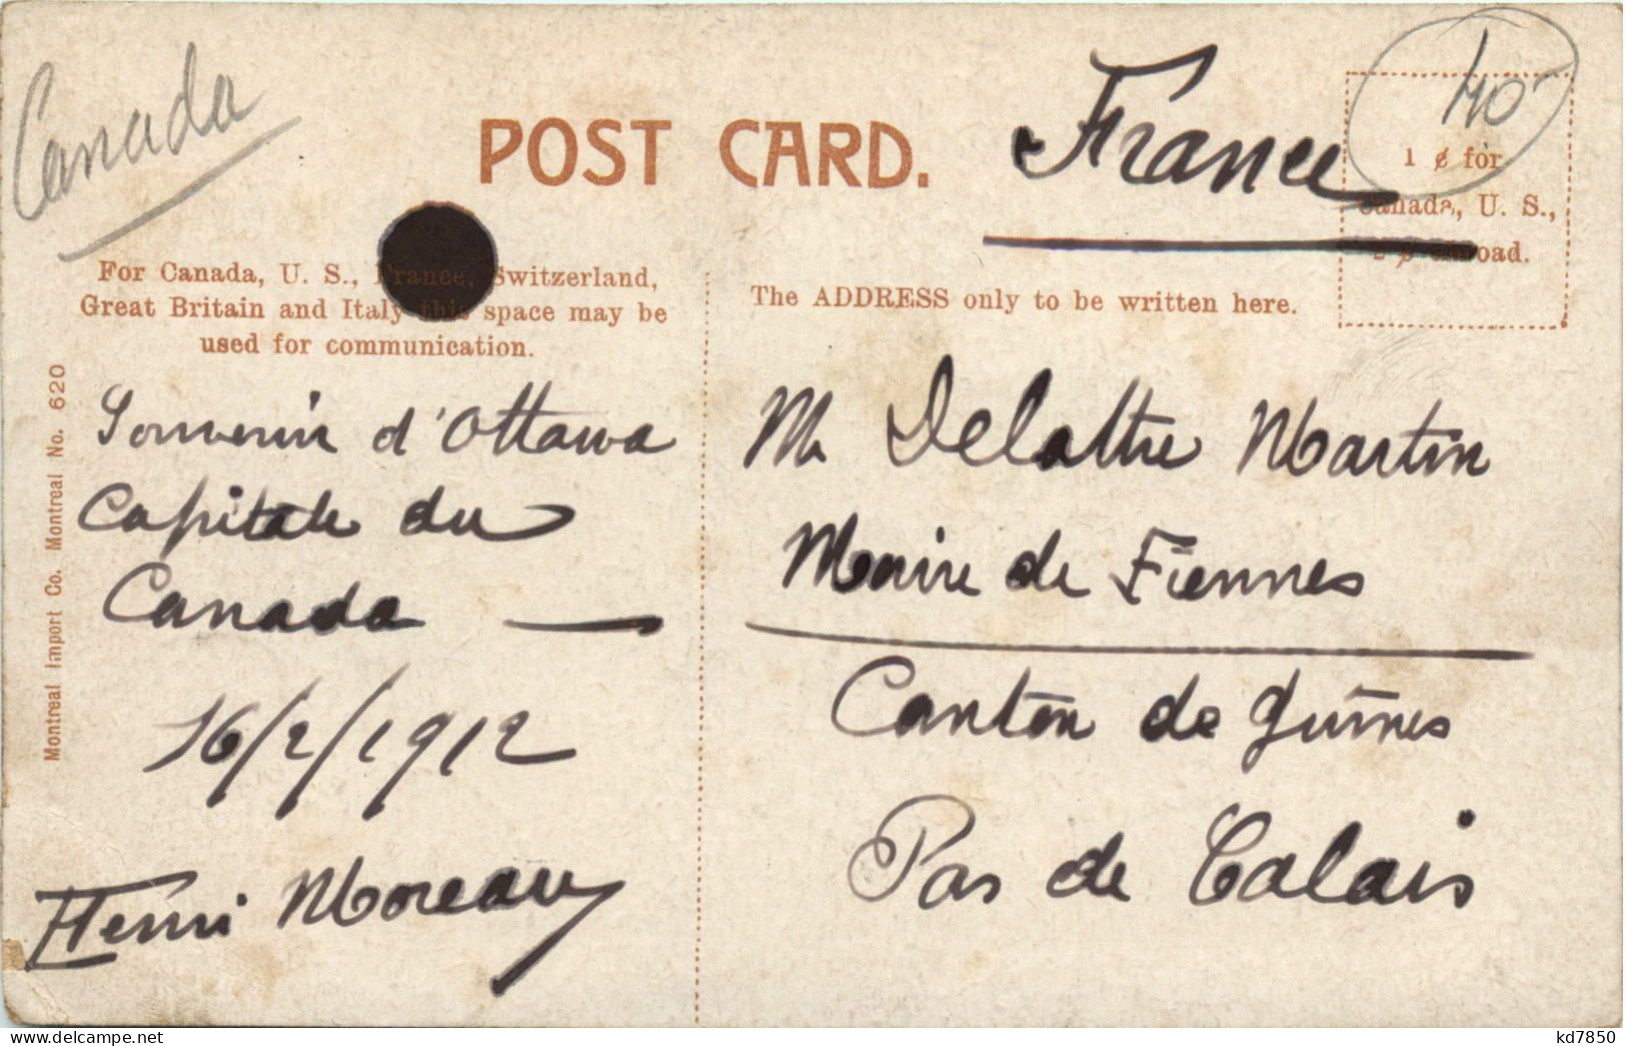 Canada
POST CARD.
France
40
1 ¢ for
Canada, U. S.,
2 ¢ abroad.
For Canada, U. S., France, Switzerland,
Great Britain and Italy this space may be
used for communication.
The ADDRESS only to be written here.
Montreal Import Co. Montreal No. 620
Souvenir d'Ottawa
Capitale du
Canada —
16/2/1912
Henri Moreau
M. Delattre Martin
Maire de Fiennes
Canton de Guînes
Pas de Calais
the-insider.store
kd7850